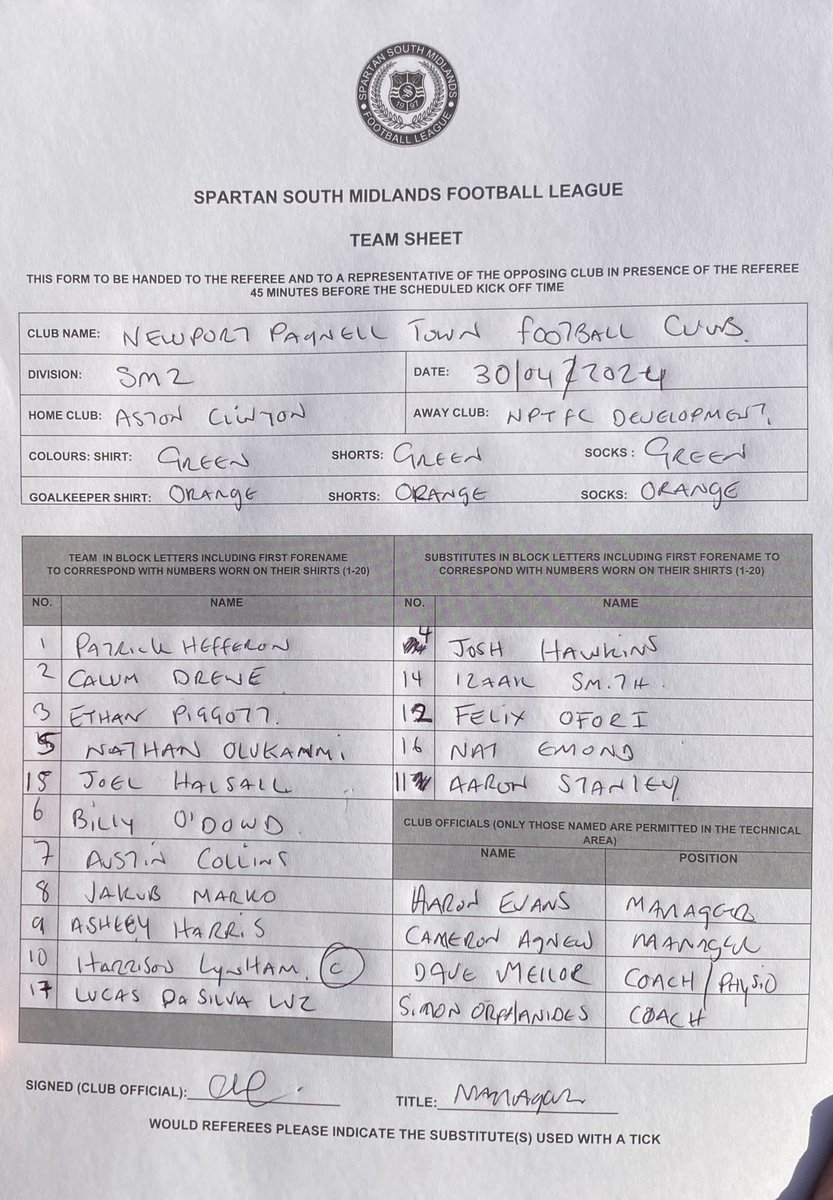 SPARTAN SOUTH MIDLANDS
1997
FOOTBALL LEAGUE
SPARTAN SOUTH MIDLANDS FOOTBALL LEAGUE
TEAM SHEET
THIS FORM TO BE HANDED TO THE REFEREE AND TO A REPRESENTATIVE OF THE OPPOSING CLUB IN PRESENCE OF THE REFEREE
45 MINUTES BEFORE THE SCHEDULED KICK OFF TIME
CLUB NAME: NEWPORT PAGNELL TOWN FOOTBALL CLUB.
DIVISION: SM2 DATE: 30/04/2024
HOME CLUB: ASTON CLINTON AWAY CLUB: NPTFC DEVELOPMENT.
COLOURS: SHIRT: GREEN SHORTS: GREEN SOCKS : GREEN
GOALKEEPER SHIRT: ORANGE SHORTS: ORANGE SOCKS: ORANGE
TEAM IN BLOCK LETTERS INCLUDING FIRST FORENAME
TO CORRESPOND WITH NUMBERS WORN ON THEIR SHIRTS (1-20)
NO. NAME
1 PATRICK HEFFERON
2 CALUM DREWE
3 ETHAN PIGGOTT.
5 NATHAN OLUKANMI
15 JOEL HALSALL
6 BILLY O'DOWD.
7 AUSTIN COLLINS
8 JAKUB MARKO
9 ASHLEY HARRIS
10 HARRISON LYNHAM. C
17 LUCAS DA SILVA LUZ
SUBSTITUTES IN BLOCK LETTERS INCLUDING FIRST FORENAME TO
CORRESPOND WITH NUMBERS WORN ON THEIR SHIRTS (1-20)
NO. NAME
4 JOSH HAWKINS
14 IZAAK SMITH.
12 FELIX OFORI
16 NAT EMOND
11 AARON STANLEY
CLUB OFFICIALS (ONLY THOSE NAMED ARE PERMITTED IN THE TECHNICAL
AREA)
NAME POSITION
AARON EVANS MANAGER
CAMERON AGNEW MANAGER
DAVE MELLOR COACH / PHYSIO
SIMON ORPHANIDES COACH
SIGNED (CLUB OFFICIAL): TITLE: MANAGER
WOULD REFEREES PLEASE INDICATE THE SUBSTITUTE(S) USED WITH A TICK